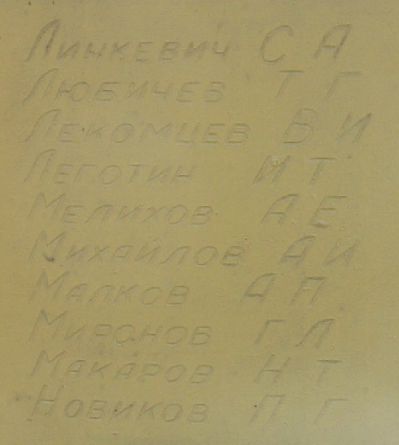 Линкевич С А
Любичев Т Г
Лекомцев В И
Леготин И Т
Мелихов А Е
Михайлов А И
Малков А П
Миронов Г Л
Макаров Н Т
Новиков П Г